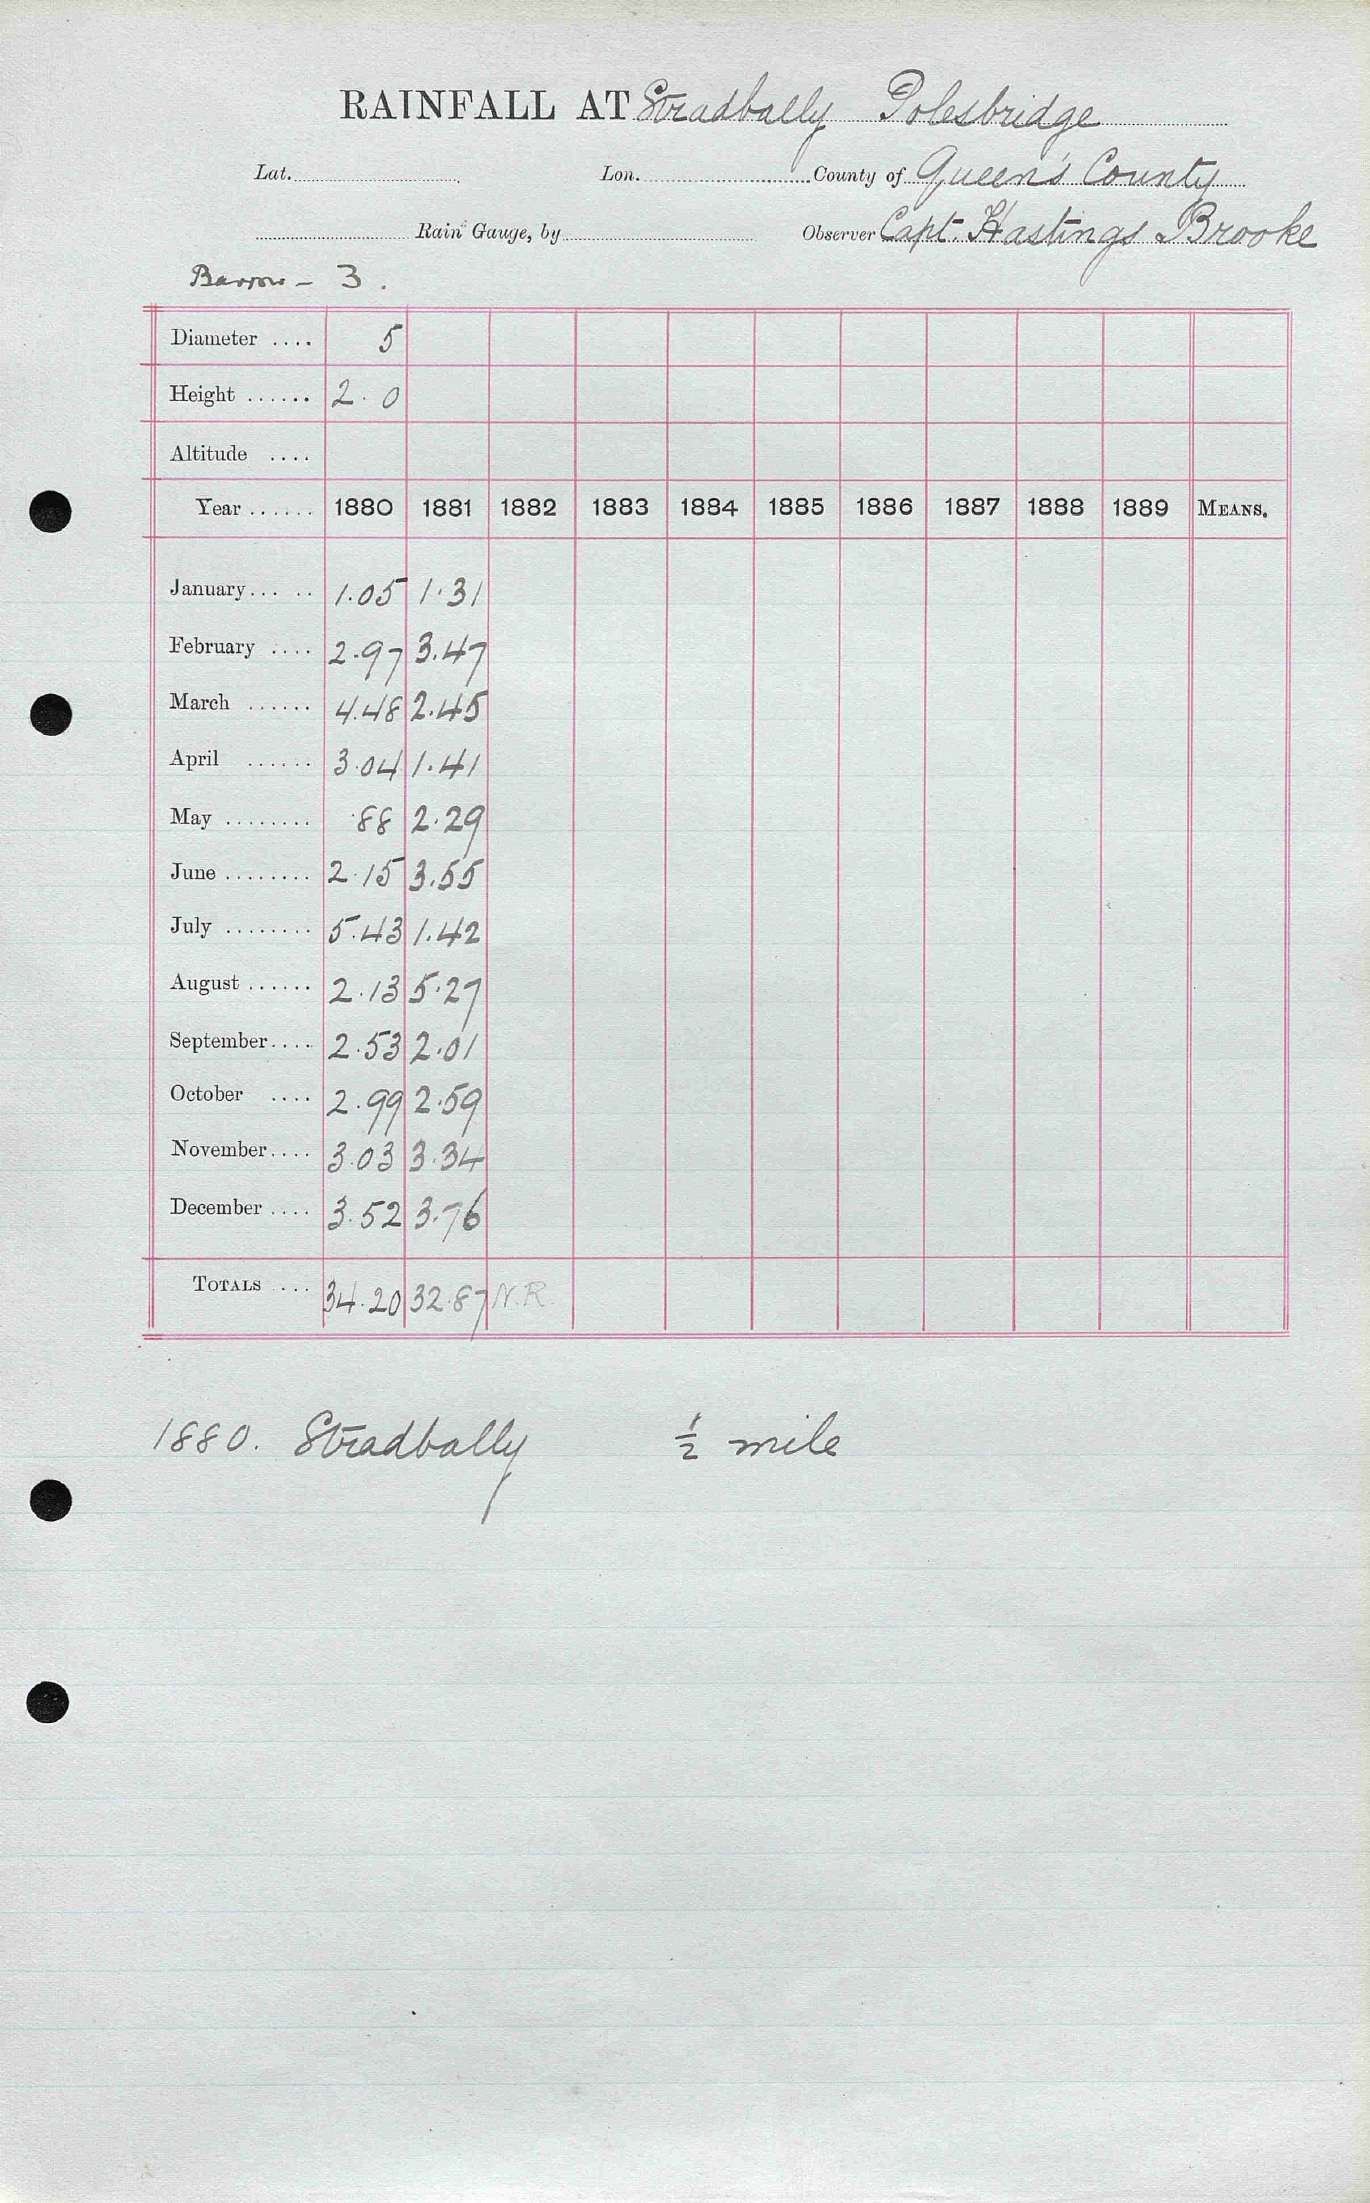 RAINFALL AT Stradbally Polesbridge
Lat. Lon. County of Queen's County
Rain Gauge, by Observer Capt. Hastings Brooke
Barrow - 3.
Diameter .... 5
Height ...... 2. 0
Altitude ....
Year ...... 1880 1881 1882 1883 1884 1885 1886 1887 1888 1889 MEANS.
January... .. 1.05 1.31
February .... 2.97 3.47
March ...... 4.48 2.45
April ...... 3.04 1.41
May ........ .88 2.29
June ........ 2.15 3.55
July ........ 5.43 1.42
August ...... 2.13 5.27
September.... 2.53 2.01
October .... 2.99 2.59
November.... 3.03 3.34
December .... 3.52 3.76
TOTALS ... 34.20 32.87 N.R.
1880. Stradbally ½ mile